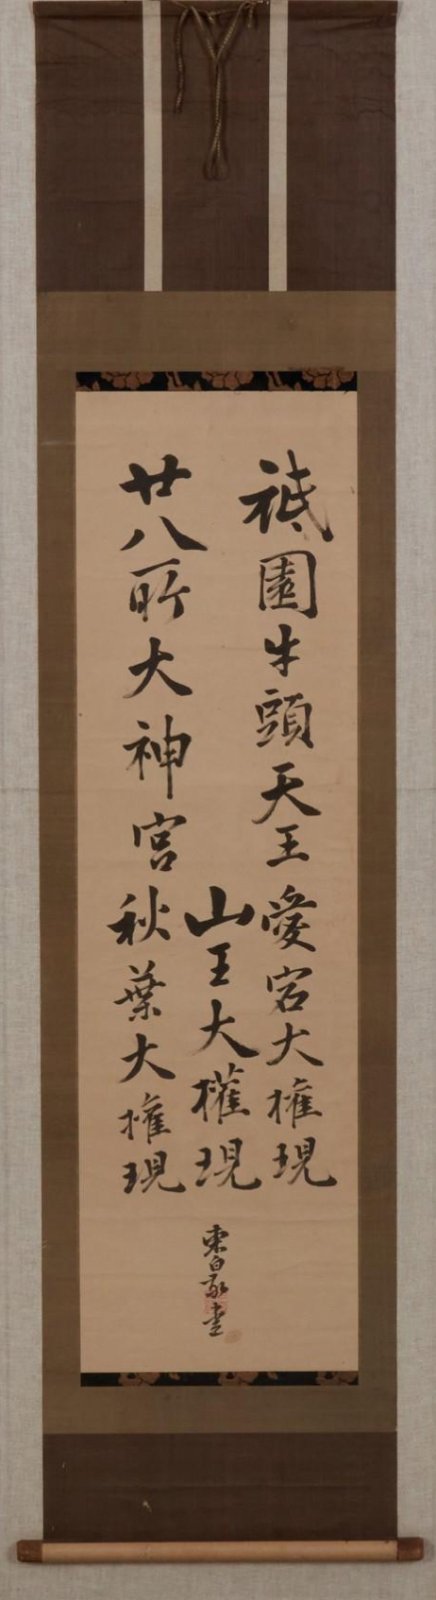 祗園牛頭天王愛宕大権現
山王大權現
廿八所大神宮秋葉大権現
東白敬書